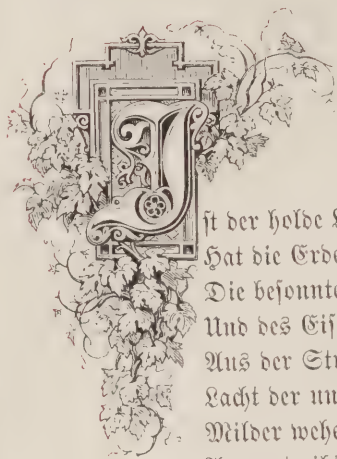 Iſt der holde
Hat die Erde
Die beſonnte
Und des Eiſ
Aus der Str
Lacht der un
Milder wehe